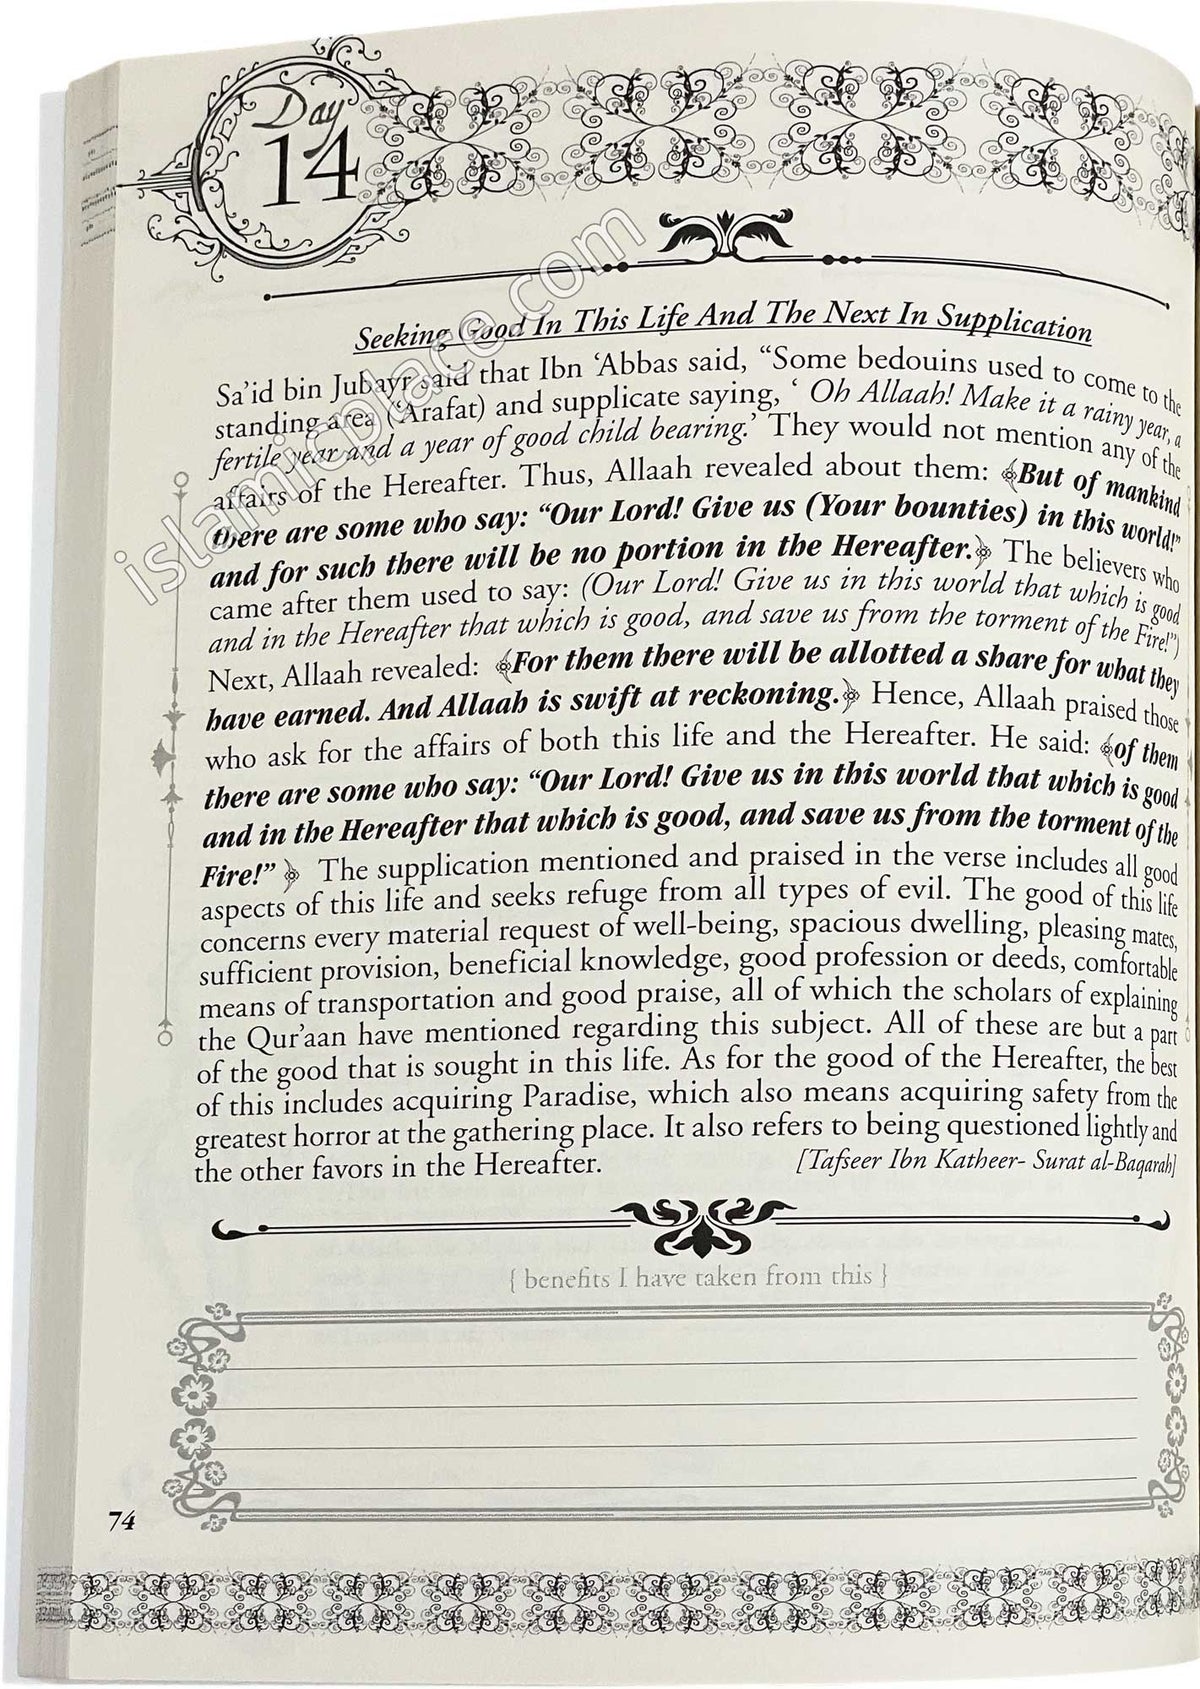 Day
14
islamicplace.com
Seeking Good In This Life And The Next In Supplication
Sa'id bin Jubayr said that Ibn ‘Abbas said, “Some bedouins used to come to the
standing area (‘Arafat) and supplicate saying, ‘ Oh Allaah! Make it a rainy year, a
fertile year and a year of good child bearing.’ They would not mention any of the
affairs of the Hereafter. Thus, Allaah revealed about them: ﴾But of mankind
there are some who say: “Our Lord! Give us (Your bounties) in this world!”
and for such there will be no portion in the Hereafter.﴿ The believers who
came after them used to say: (Our Lord! Give us in this world that which is good
and in the Hereafter that which is good, and save us from the torment of the Fire!”)
Next, Allaah revealed: ﴾For them there will be allotted a share for what they
have earned. And Allaah is swift at reckoning.﴿ Hence, Allaah praised those
who ask for the affairs of both this life and the Hereafter. He said: ﴾of them
there are some who say: “Our Lord! Give us in this world that which is good
and in the Hereafter that which is good, and save us from the torment of the
Fire!” ﴿ The supplication mentioned and praised in the verse includes all good
aspects of this life and seeks refuge from all types of evil. The good of this life
concerns every material request of well-being, spacious dwelling, pleasing mates,
sufficient provision, beneficial knowledge, good profession or deeds, comfortable
means of transportation and good praise, all of which the scholars of explaining
the Qur'aan have mentioned regarding this subject. All of these are but a part
of the good that is sought in this life. As for the good of the Hereafter, the best
of this includes acquiring Paradise, which also means acquiring safety from the
greatest horror at the gathering place. It also refers to being questioned lightly and
the other favors in the Hereafter. [Tafseer Ibn Katheer- Surat al-Baqarah]
{ benefits I have taken from this }
74